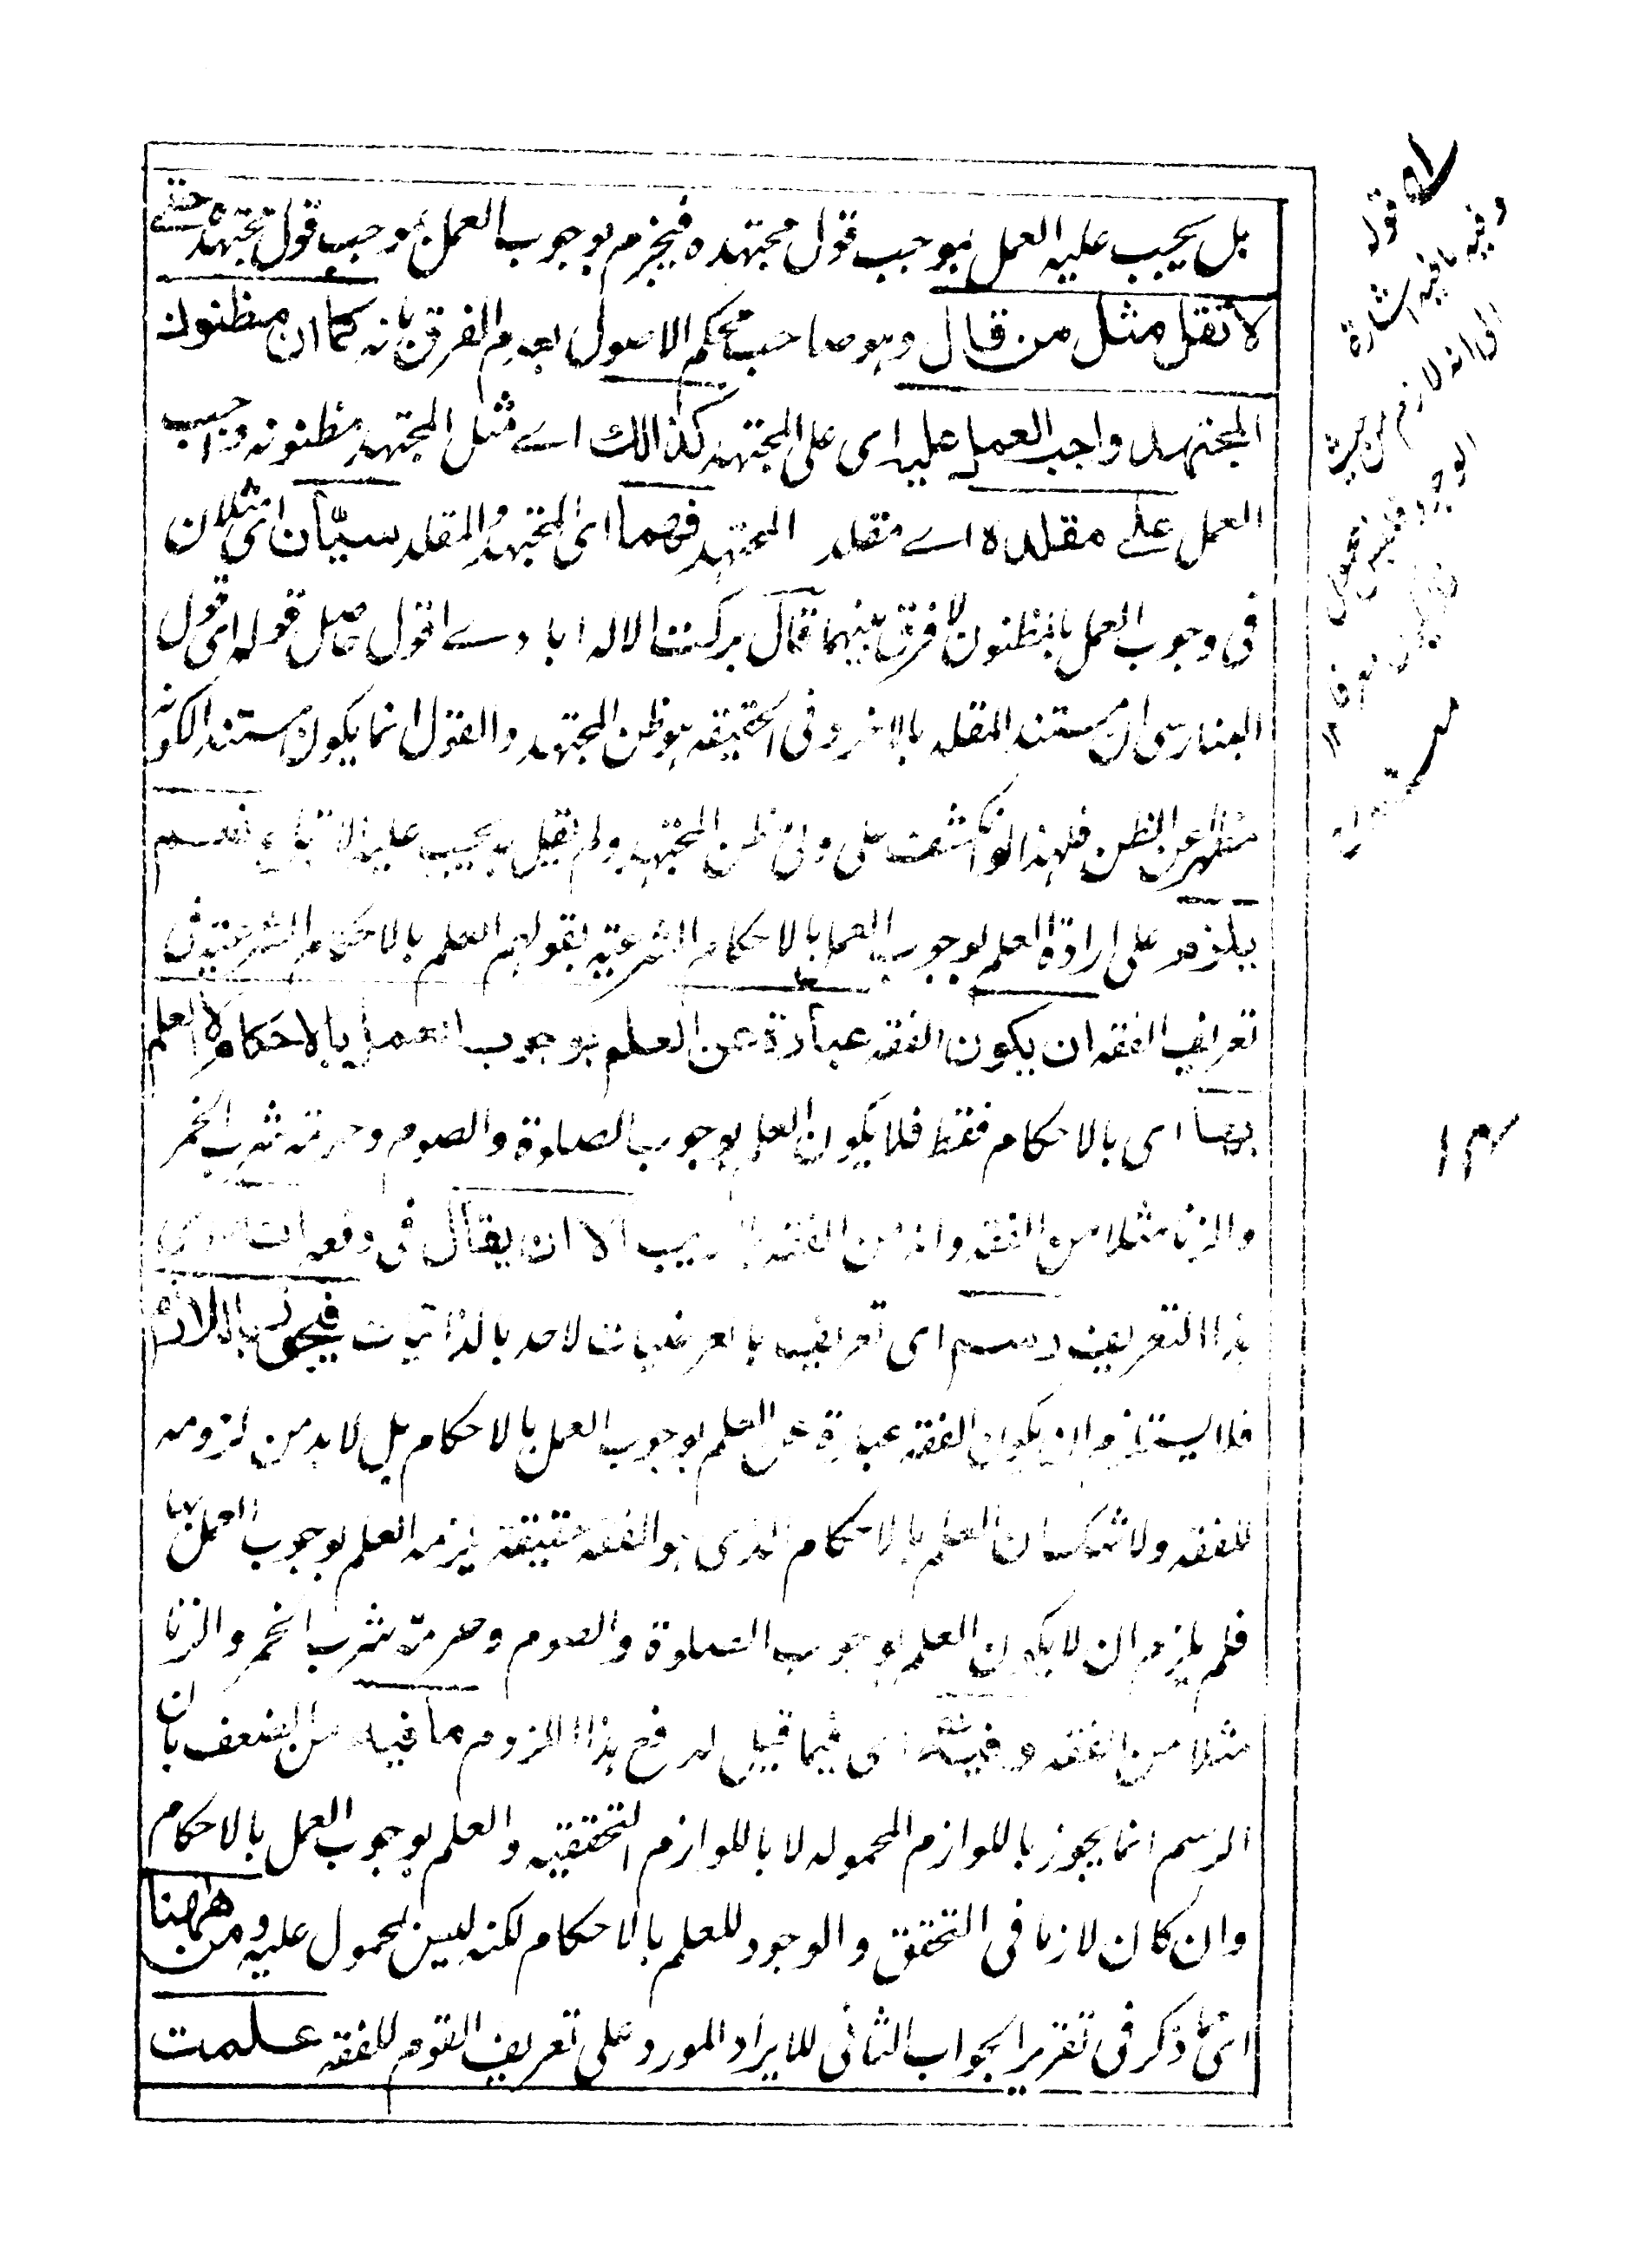 بل يجب عليه العمل بموجب قول مجتهده فيجزم بوجوب العمل بموجب قول مجتهده حتى
لا تقل مثل من قال وهو صاحب محكم الاصول بعدم الفرق بانه كما ان مظنون
المجتهد واجب العمل عليه اى على المجتهد كذالك اے مثل المجتهد مظنونه واجب
العمل على مقلده اے مقلد المجتهد فهما اى المجتهد والمقلد سيّان اى مثلان
فى وجوب العمل بالمظنون لا فرق بينهما قال بركت الاله ابادے اقول حاصل قوله اى قول
البنارسى ان مستند المقلد بالاخر وفى الحقيقه هو ظن المجتهد والقول انما يكون مستندا لكونه
مظهرا عن الظن فلهذا لو انكشف على ولى ظن المجتهد ولم يقل به يجب عليه الاتباع نعم
يلزم على ارادة العلم بوجوب العمل بالاحكام الشرعية بقولهم العلم بالاحكام الشرعية فى
تعريف الفقه ان يكون الفقه عبارة عن العلم بوجوب العمل بالاحكام لا العلم
بها اى بالاحكام فقط فلا يكون العلم بوجوب الصلوة والصوم وحرمة شرب الخمر
والزنا مثلا من الفقه وانه من الفقه بلا ريب الا ان يقال فى دفعه ان
هذا التعريف رسم اى تعريف بالعرضيات لا حد بالذاتيات فيجوز باللازم
فلا يستلزم ان يكون الفقه عبارة عن العلم بوجوب العمل بالاحكام بل لا بد من لزومه
للفقه ولا شك ان العلم بالاحكام الذى هو الفقه حقيقة يلزمه العلم بوجوب العمل بها
فلم يلزم ان لا يكون العلم بوجوب الصلوة والصوم وحرمة شرب الخمر والزنا
مثلا من الفقه وفيه اى فيما قيل لدفع هذا اللزوم ما فيه من الضعف بان
الرسم انما يجوز باللوازم المحموله لا باللوازم التحققيه والعلم بوجوب العمل بالاحكام
وان كان لازما فى التحقق والوجود للعلم بالاحكام لكنه ليس بمحمول عليه ومن ههنا
اى مما ذكر فى تقرير الجواب الثانى للايراد المورد على تعريف القوم للفقه علمت
قوله
وفيه ما فيه اشارة
الى انه لازم من حيث
الوجود